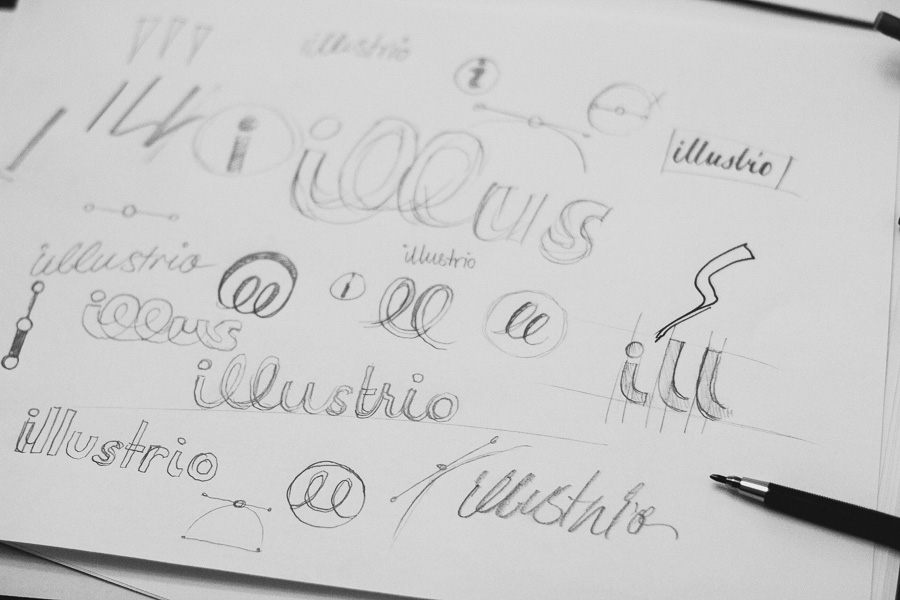 illustrio
i
i
illus
illustrio
illustrio
illustrio
ll
i
ll
ll
illus
illustrio
ill
illustrio
ll
illustrio